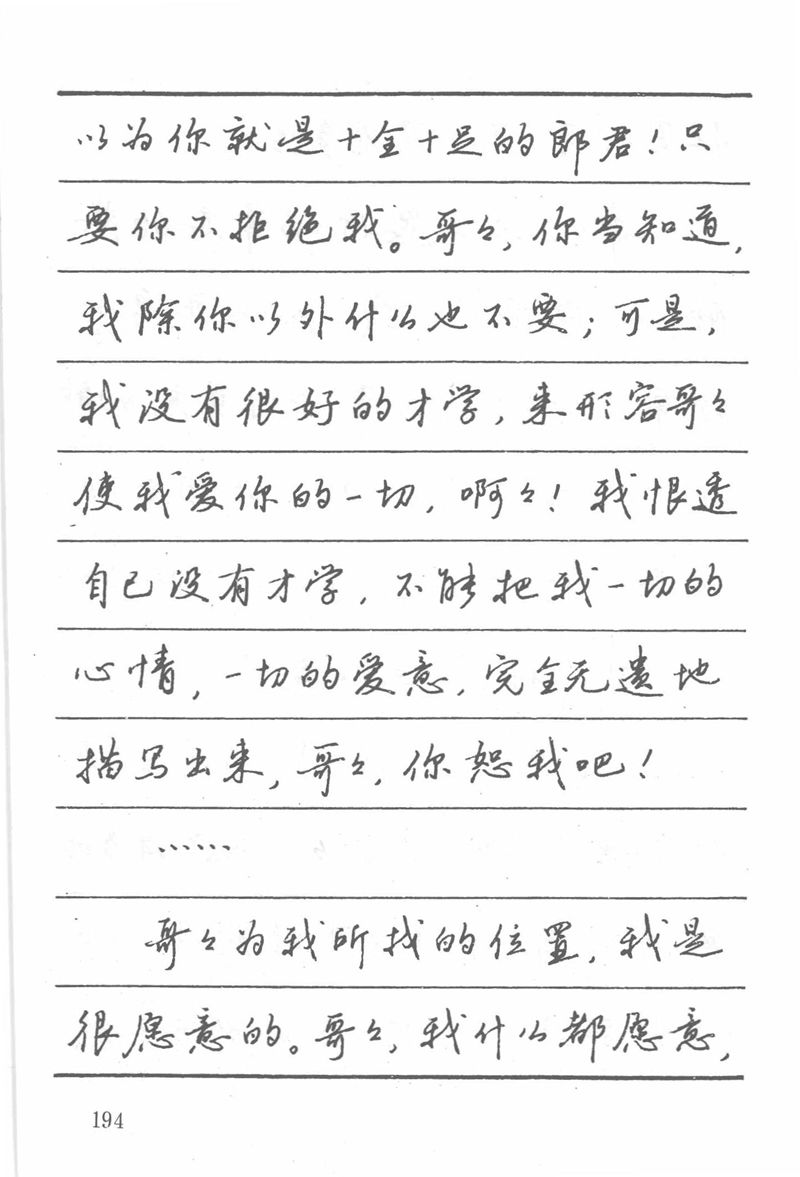 以为你就是十全十足的郎君！只
要你不拒绝我。哥々，你当知道，
我除你以外什么也不要；可是，
我没有很好的才学，来形容哥々
使我爱你的一切，啊々！我恨透
自己没有才学，不能把我一切的
心情，一切的爱意，完全无遗地
描写出来，哥々，你恕我吧！
……
哥々为我所找的位置，我是
很愿意的。哥々，我什么都愿意，
194